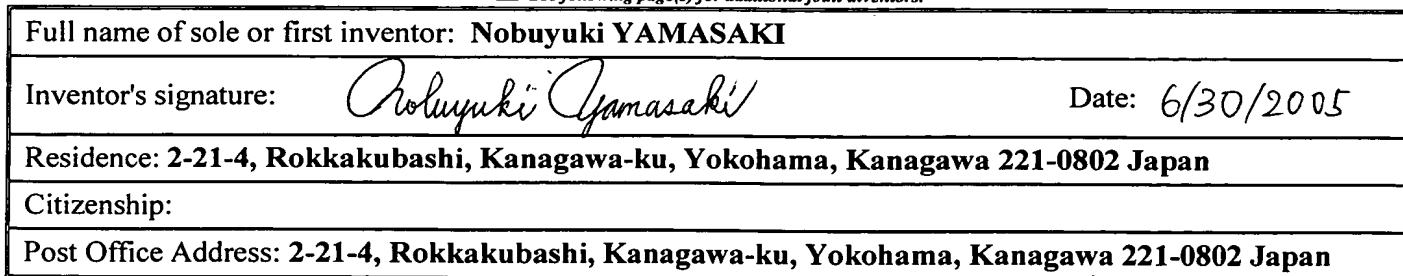 following page(s) for additional joint inventors.
Full name of sole or first inventor: Nobuyuki YAMASAKI
Inventor's signature: Nobuyuki Yamasaki Date: 6/30/2005
Residence: 2-21-4, Rokkakubashi, Kanagawa-ku, Yokohama, Kanagawa 221-0802 Japan
Citizenship:
Post Office Address: 2-21-4, Rokkakubashi, Kanagawa-ku, Yokohama, Kanagawa 221-0802 Japan